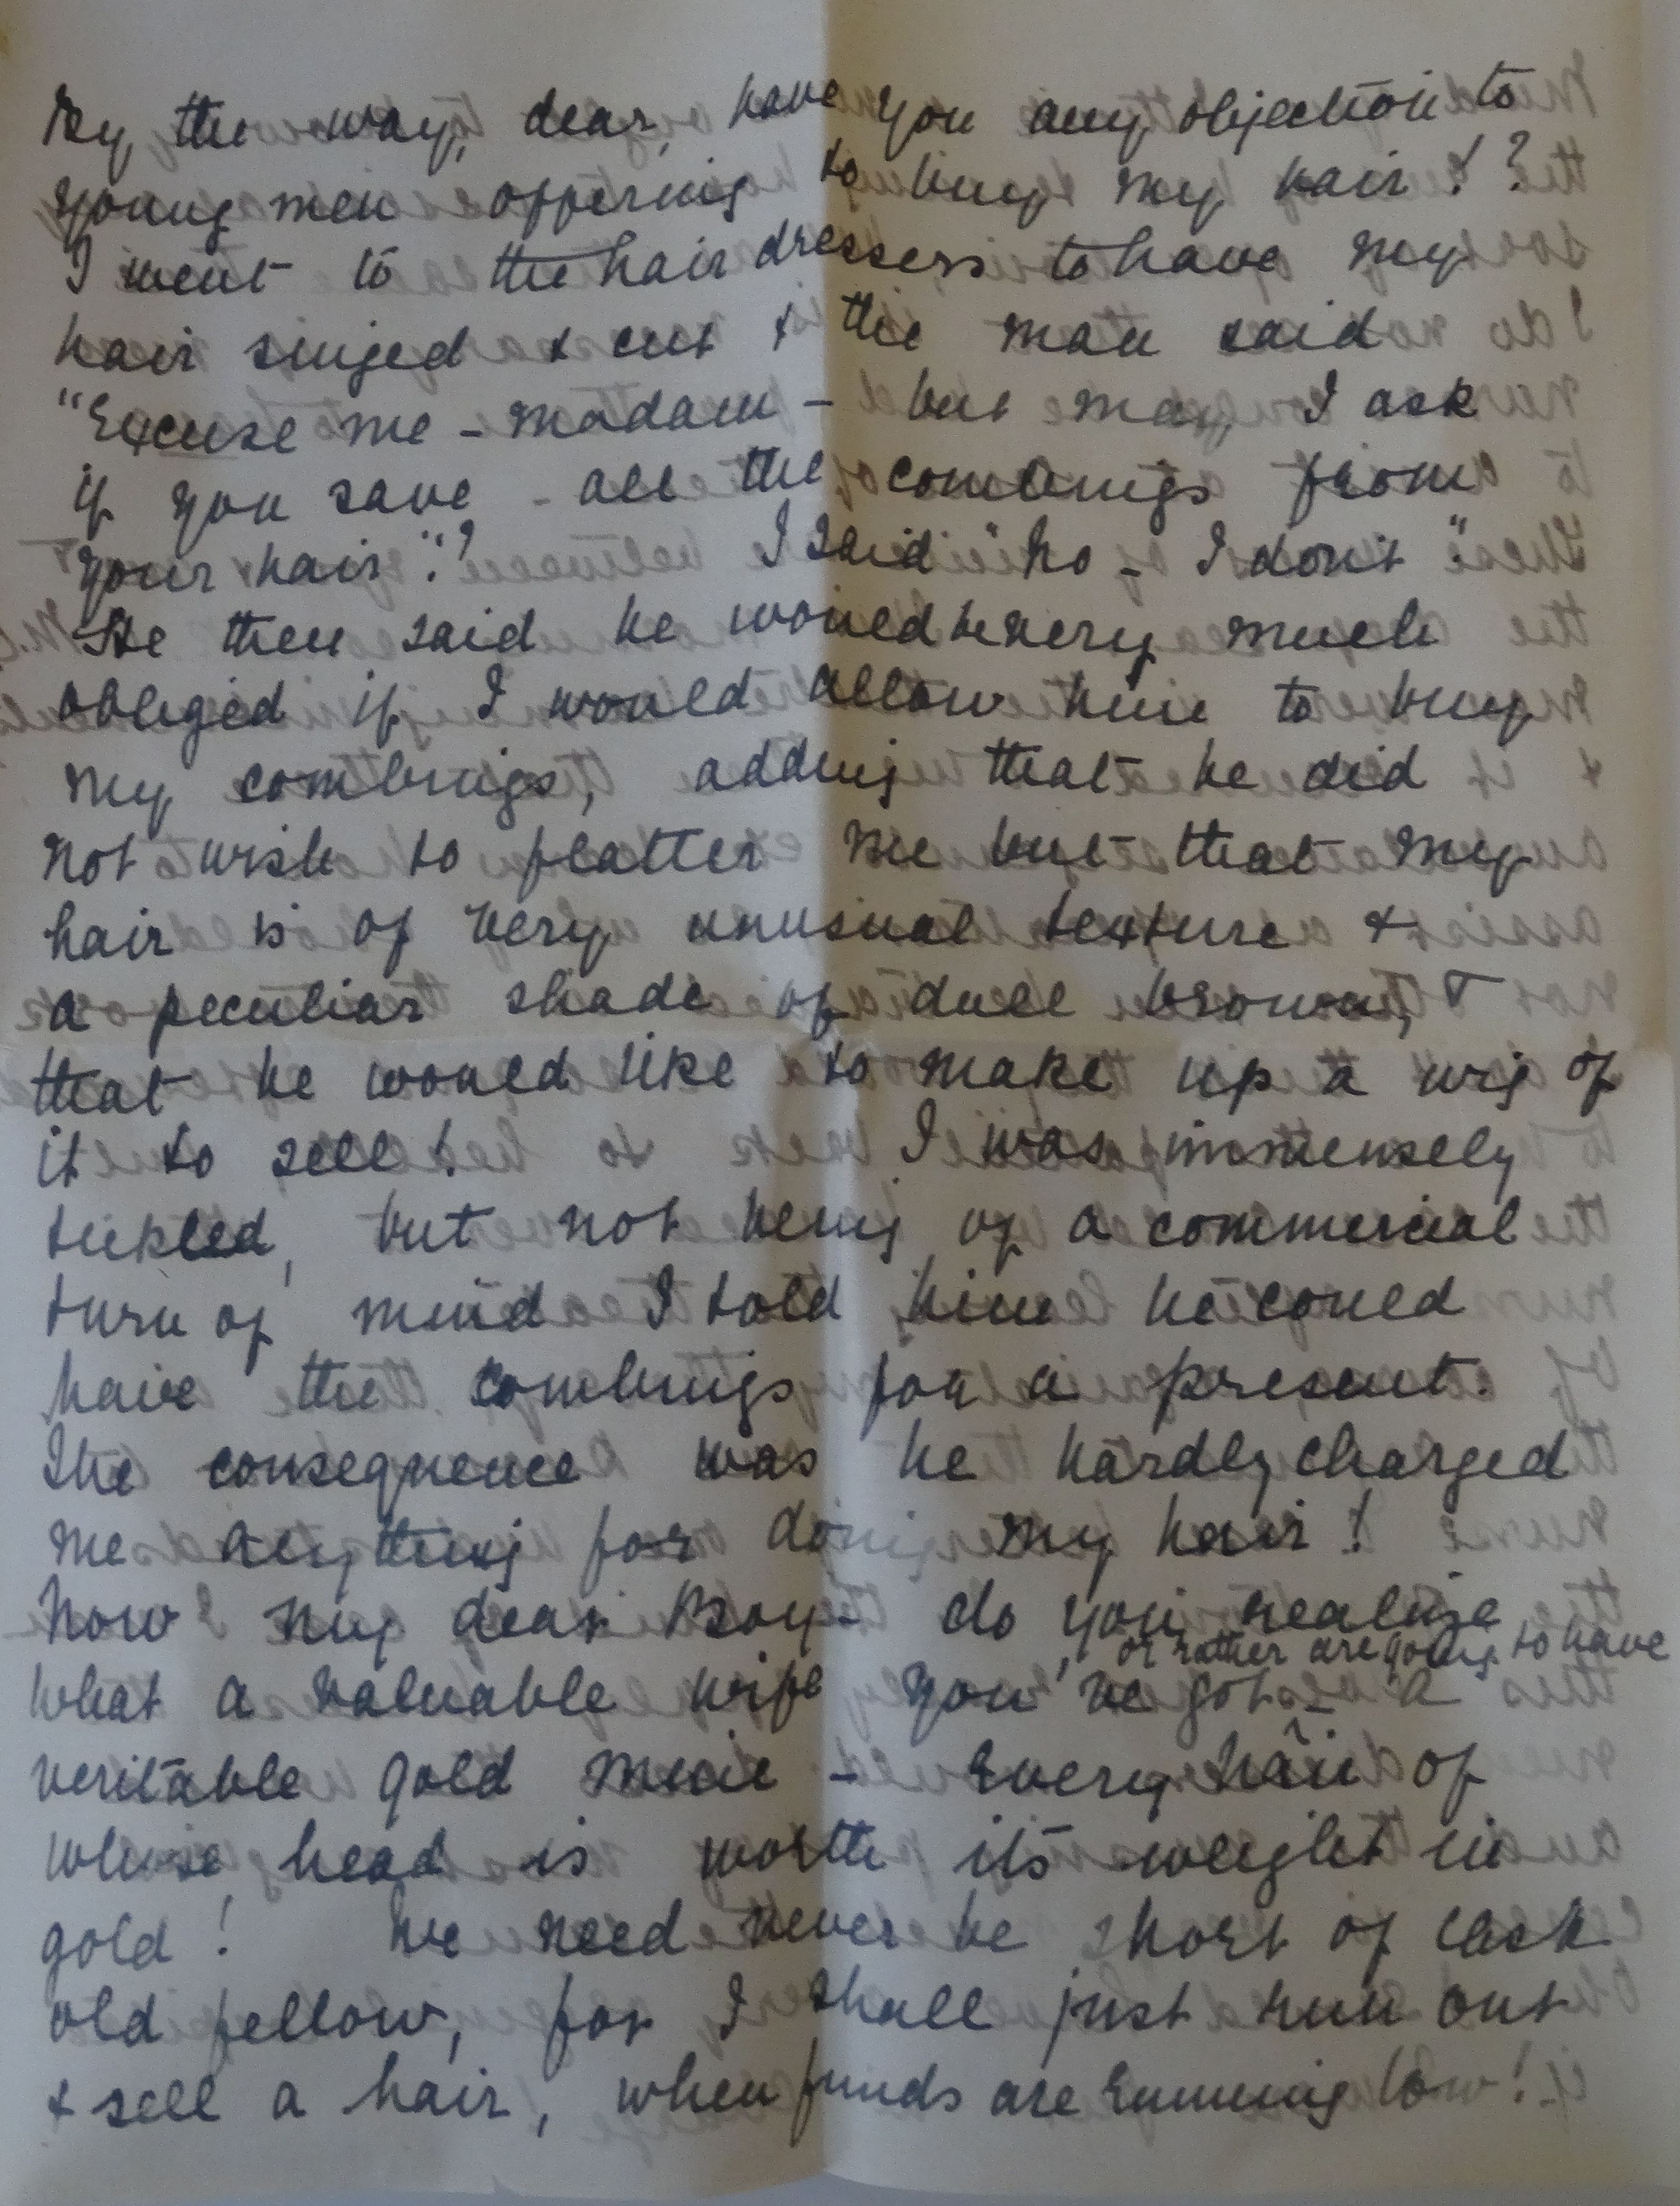 By the way, dear, have you any objection to
young men offering to buy my hair!?
I went to the hairdressers to have my
hair singed & cut & the man said
"Excuse me – madam – but may I ask
if you save – all the combings from
your hair"? I said "No – I don't".
He then said he would be very much
obliged if I would allow him to buy
my combings, adding that he did
not wish to flatter me but that my
hair is of very unusual texture &
a peculiar shade of dull brown, &
that he would like to make up a wig of
it to sell! I was immensely
tickled, but not being of a commercial
turn of mind I told him he could
have the combings for a present.
The consequence was he hardly charged
me anything for doing my hair!
Now my dear Boy – do you realize
, or rather are going to have
what a valuable wife you've got – a
veritable gold mine – every hair of
whose head is worth its weight in
gold! We need never be short of cash
old fellow, for I shall just run out
& sell a hair, when funds are running low!